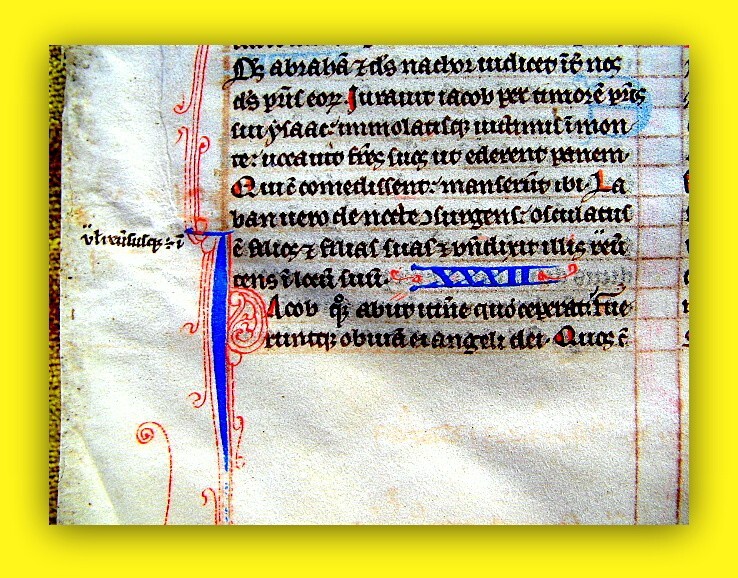 Ds abrahā ⁊ ds nachor iudicet īt nos
ds pr̄is eoꝝ. Iurauit iacob per timorē pr̄is
sui ysaac: immolatisqꝫ uictimis ī mon
te: uocauit fr̄es suos ut ederent panem.
Qui cū comedissent: manserūt ibi. La
ban uero de nocte ꝯsurgens: osculatus
ē filios ⁊ filias suas ⁊ bn̄dixit illis reū
tens ī locū suū. XXXII
Iacob qꝫ abiit itin̄e quo ceperat. fue
runtqꝫ obuiā ei angeli dei. Quos c̄
vl reūsusqꝫ ÷ ī